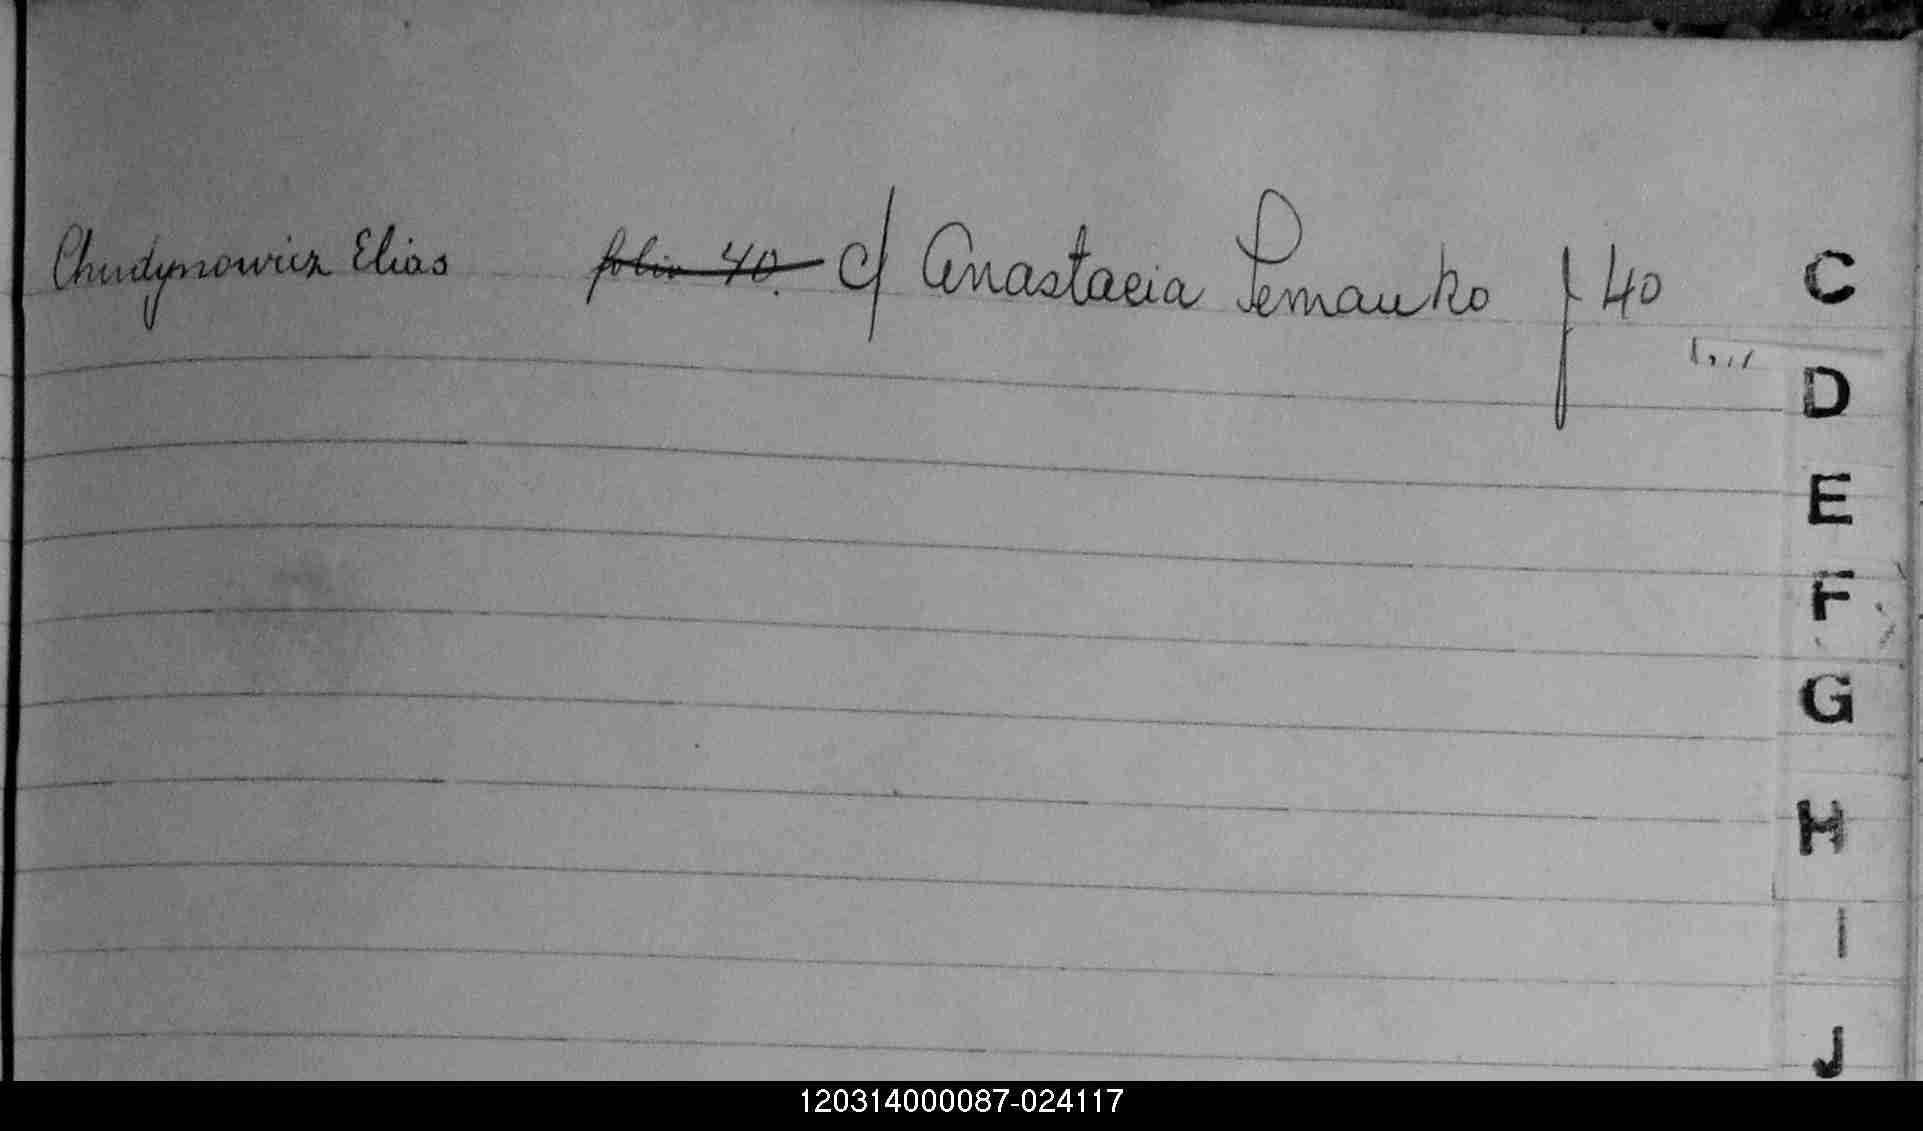 Chudynowicz Elias folio 40. c/ Anastacia Semauko f 40
C
D
E
F
G
H
I
J
120314000087-024117